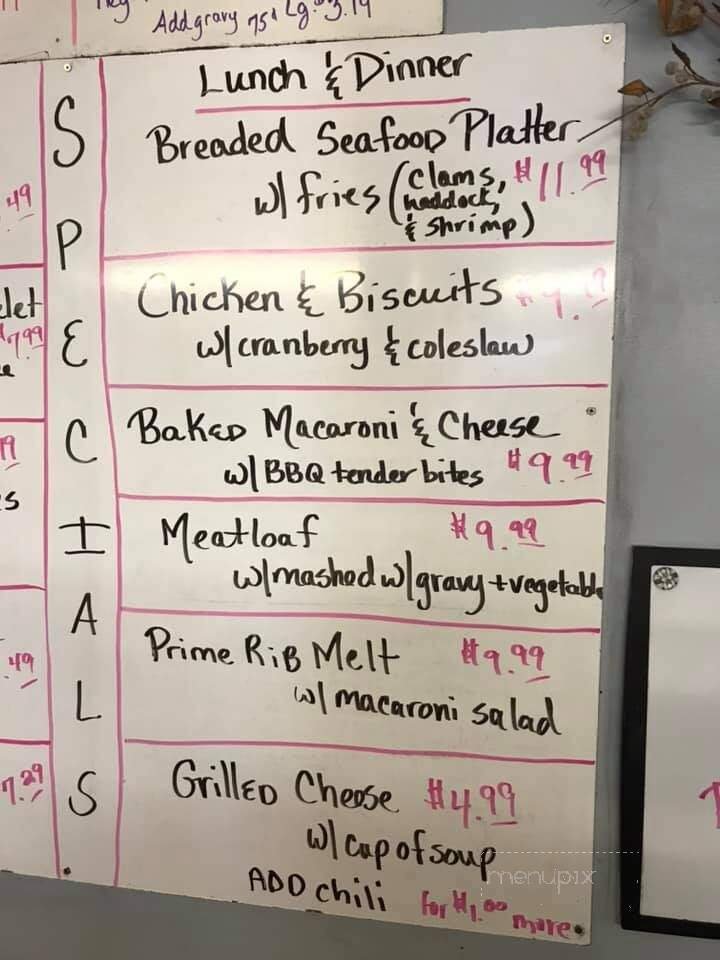 Add gravy 75¢ Lg. $3.19
SPECIALS
Lunch & Dinner
Breaded Seafood Platter
w/ fries (clams, haddock, & shrimp) $11.99
Chicken & Biscuits
w/ cranberry & coleslaw
Baked Macaroni & Cheese
w/ BBQ tender bites $9.99
Meatloaf $9.99
w/mashed w/gravy + vegetable
Prime Rib Melt $9.99
w/ macaroni salad
Grilled Cheese $4.99
w/ cup of soup
ADD chili for $1.00 more
.49
$7.99
.49
7.29
menupix